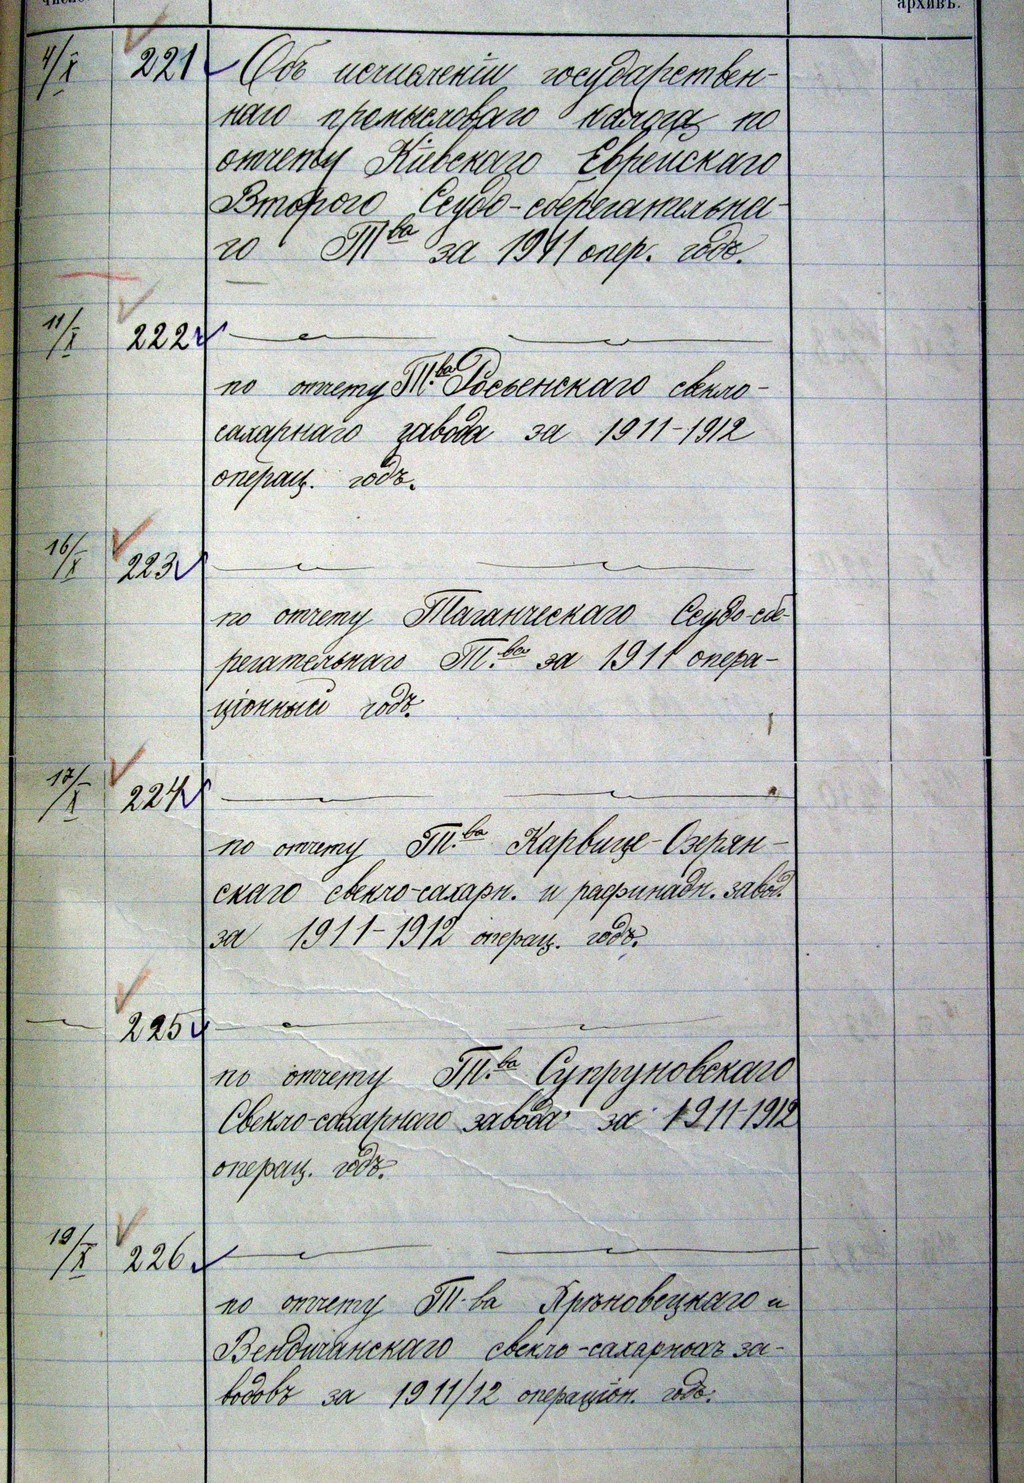 архивъ.
4/X 221 Объ исчисленiи государствен-
наго промысловаго налога по
отчету Кiевскаго Еврейскаго
Второго Ссудо-сберегательна-
го Т ва за 1911 опер. годъ.
11/X 222
по отчету Т.ва Росьенскаго свекло-
сахарнаго завода за 1911-1912
операц. годъ.
16/X 223
по отчету Таганческаго Ссудо-сбе-
регательнаго Т.ва за 1911 опера-
цiонный годъ.
17/X 224
по отчету Т.ва Карвице-Озерян-
скаго свекло-сахарн. и рафинадн. завод.
за 1911-1912 операц. годъ.
225
по отчету Т.ва Супруновскаго
Свекло-сахарнаго завода за 1911-1912
операц. годъ.
19/X 226
по отчету Т-ва Хрѣновецкаго и
Вендичанскаго свекло-сахарныхъ за-
водовъ за 1911/12 операцiон. годъ.